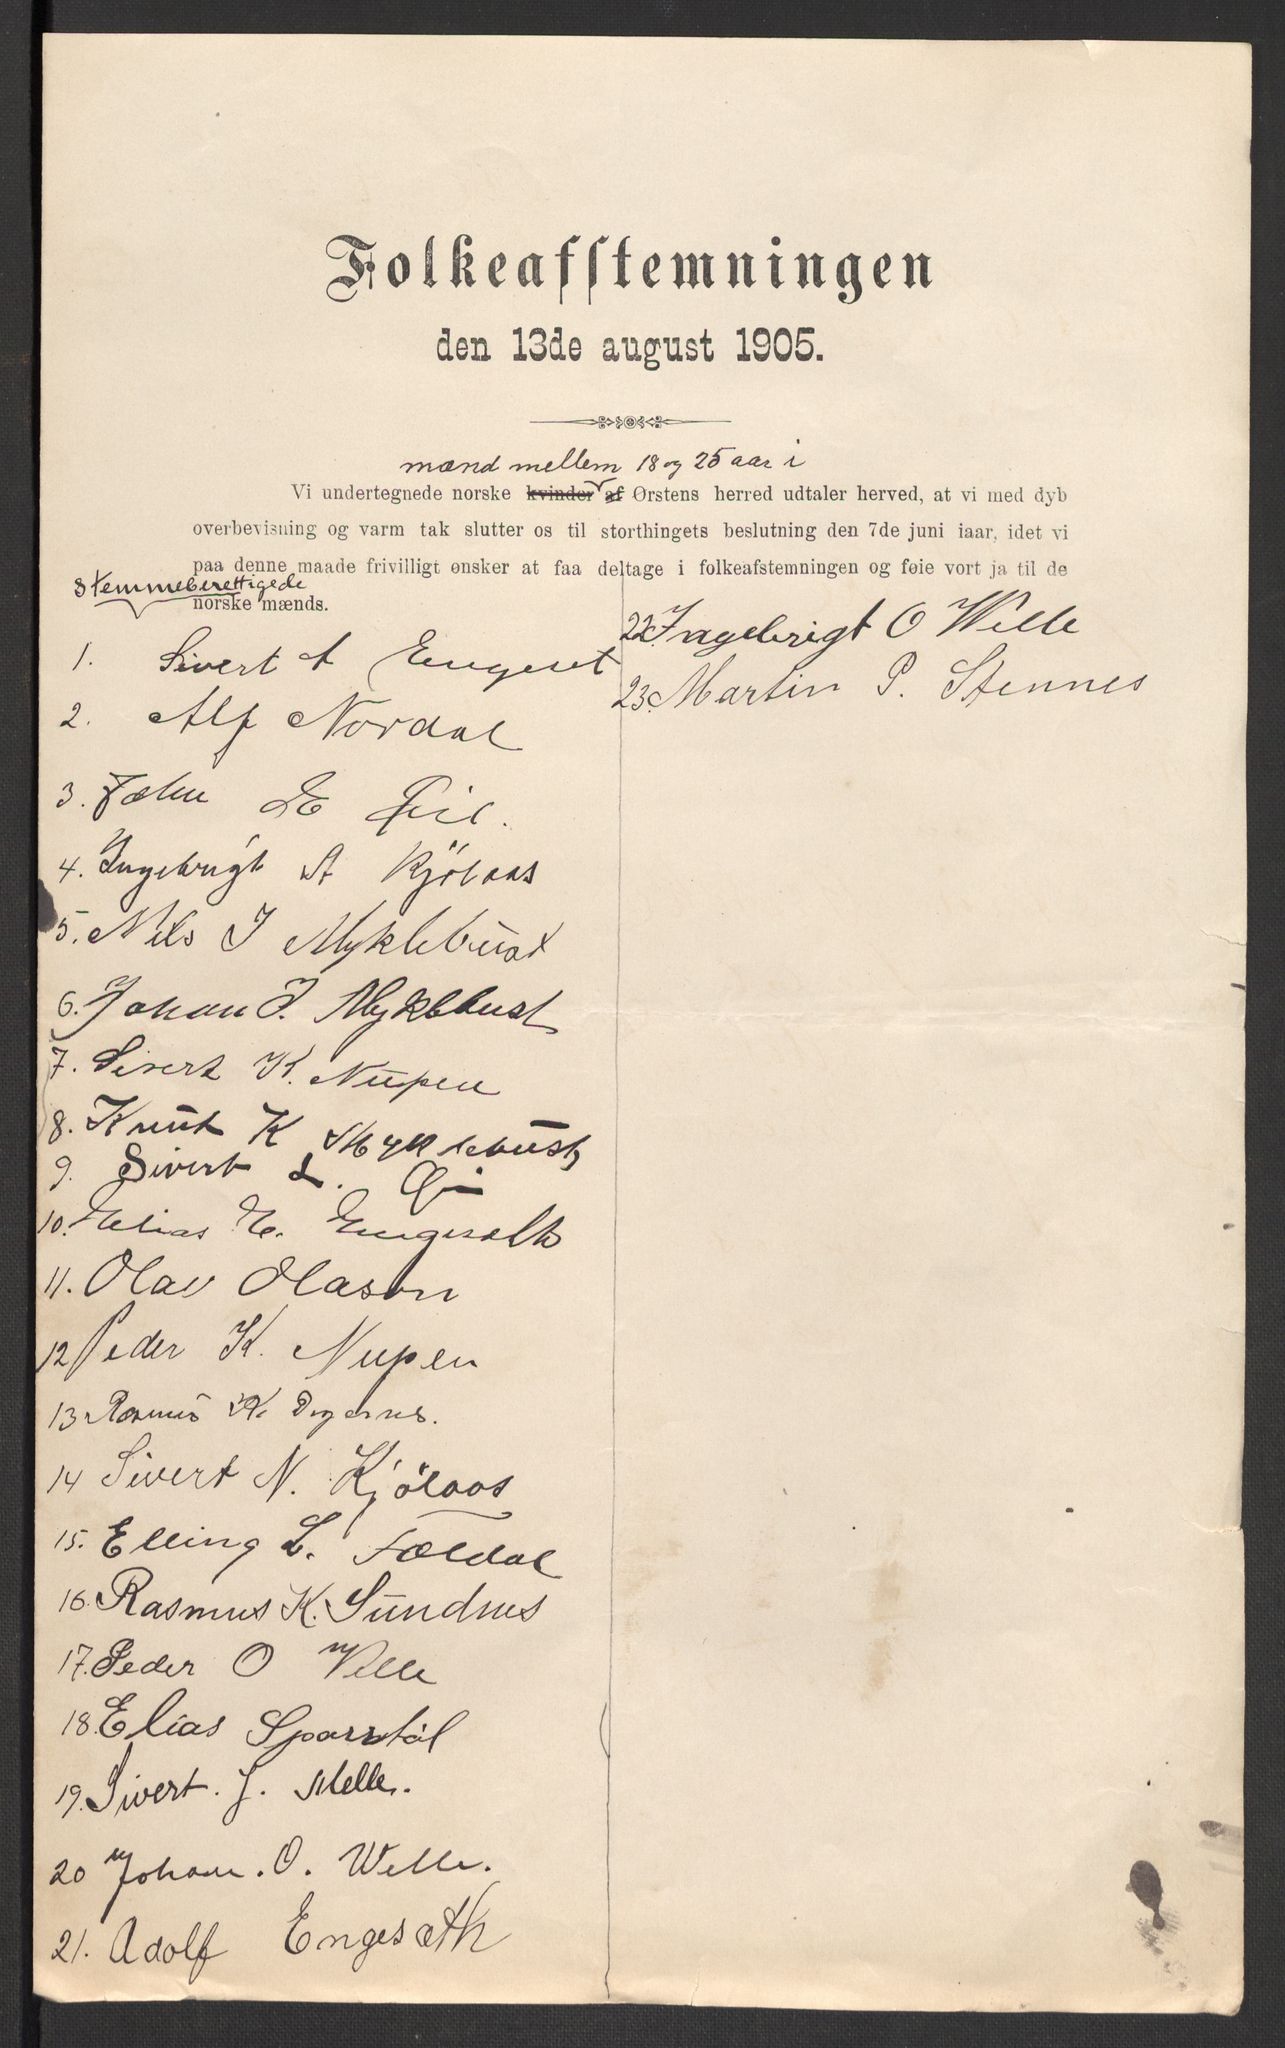 Folkeafstemningen
den 13de august 1905.
mænd mellem 18 og 25 aar i
Vi undertegnede norske kvinder af Ørstens herred udtaler herved, at vi med dyb
overbevisning og varm tak slutter os til storthingets beslutning den 7de juni iaar, idet vi
paa denne maade frivilligt ønsker at faa deltage i folkeafstemningen og føie vort ja til de
stemmeberettigede
norske mænds.
1. Sivert A Engeset
2. Alf Nordal
3. John E
4. Ingebrigt A Kjölaas
5. Nils J Myklebust
6. Johan J. Myklebust
7. Sivert K. Nupen
8. Knut K Myklebust
9. Sivert L. Øi
10. Elias E. Engeseth
11. Olav Olason
12 Peder K. Nupen
13 Rasmus K. Digernes.
14 Sivert N. Kjölaas
15. Elling L. Foldal
16. Rasmus K. Sundnes
17. Peder O Velle
18. Elias Sparstöl
19. Sivert. J. Melle.
20 Johan. O. Welle.
21. Adolf Engesæth
22. Ingebrigt O Welle
23. Martin P. Stennes